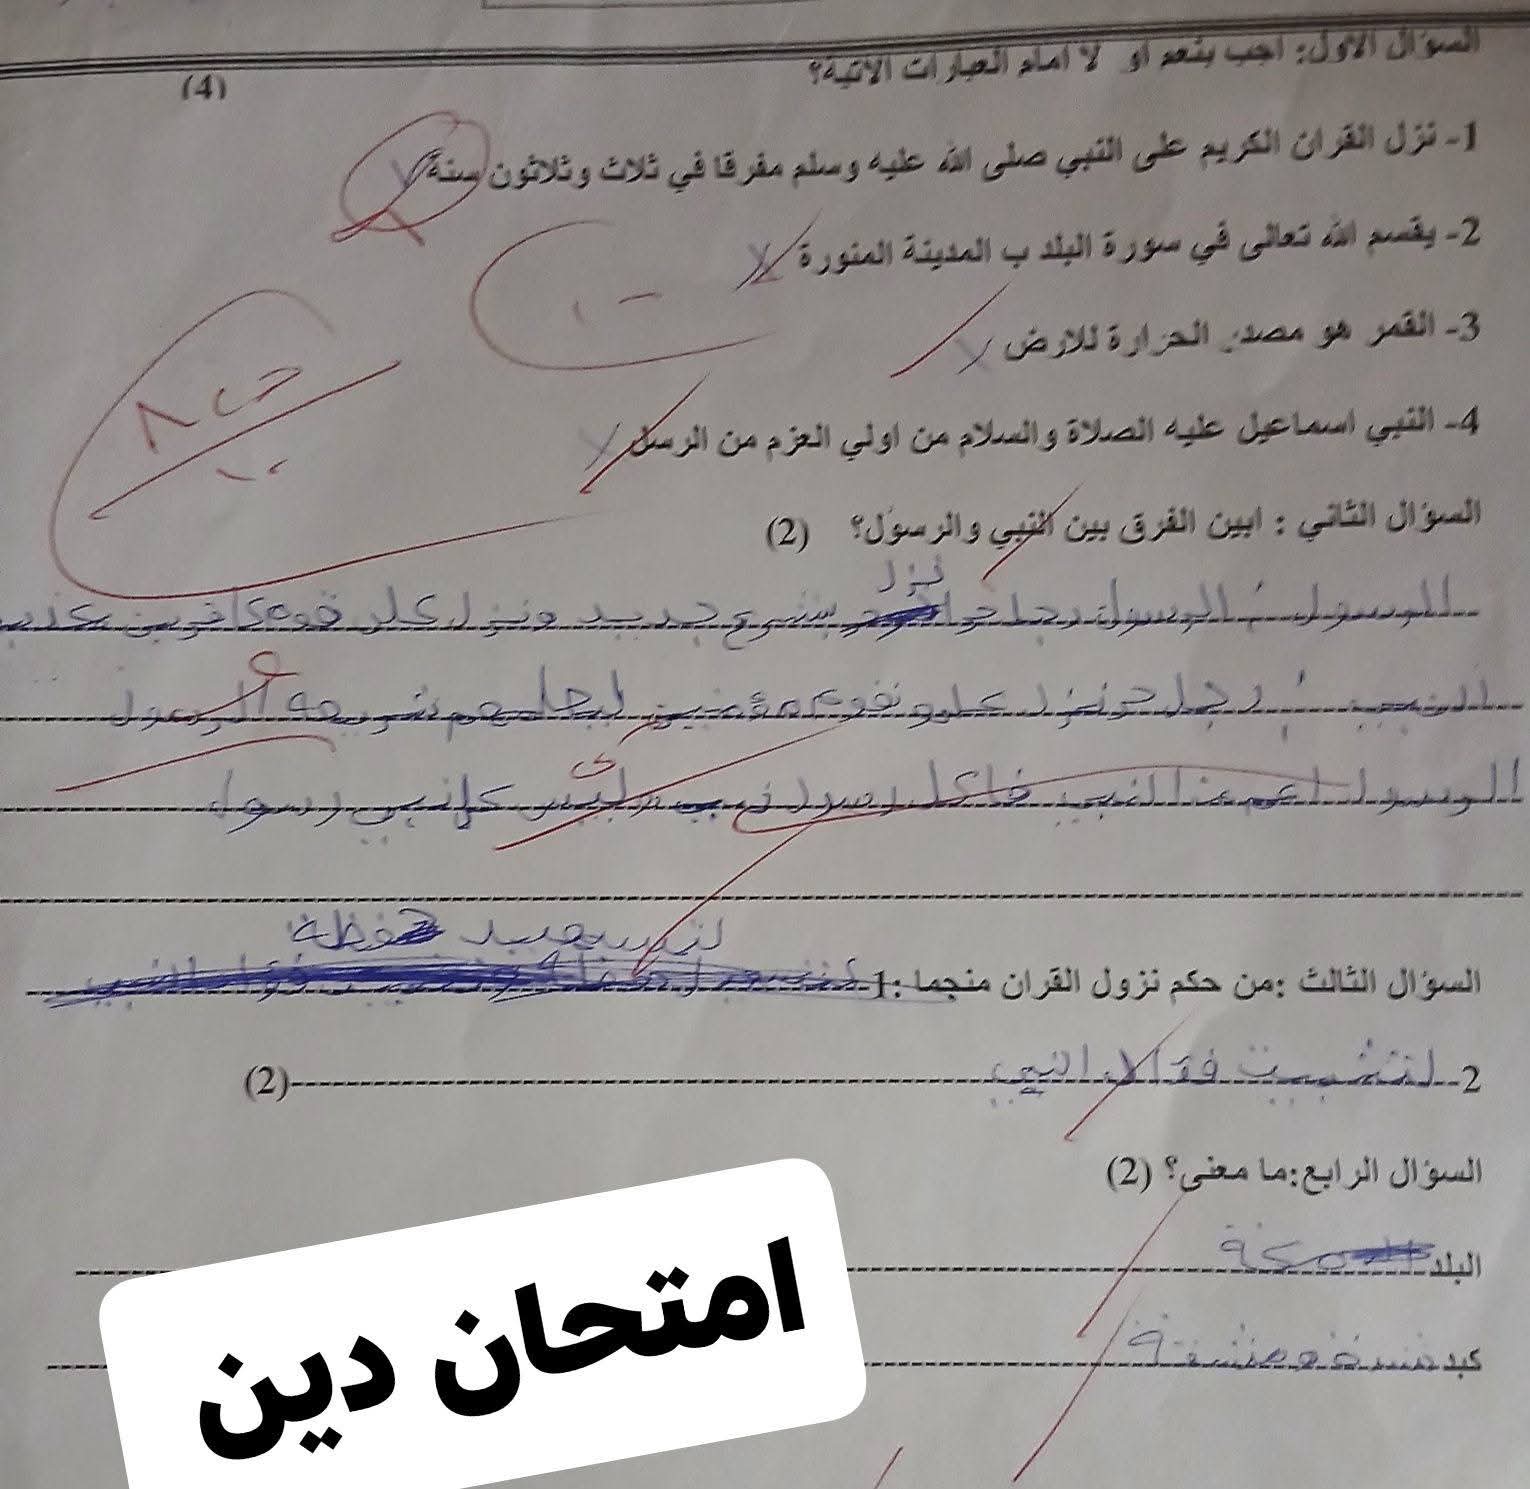 السؤال الاول: اجب بنعم او لا امام العبارات الاتية؟ (4)
1- نزل القران الكريم على النبي صلى الله عليه وسلم مفرقا في ثلاث وثلاثون سنة لا
2- يقسم الله تعالى في سورة البلد ب المدينة المنورة لا
3- القمر هو مصدر الحرارة للارض لا
4- النبي اسماعيل عليه الصلاة والسلام من اولي العزم من الرسل لا
السؤال الثاني : ابين الفرق بين النبي والرسول؟ (2)
نزل
الرسول : الرسول رجل بشرع جديد ونزل على قوم كافرين
النبي : رجل نزل على قوم مؤمنين الرسول
الرسول اعم من النبي فا كل رسول نبي وليس كل نبي رسول
لتسهيد حفظه
السؤال الثالث :من حكم نزول القران منجما :1
2- لتثبيت النبي (2)
السؤال الرابع:ما معنى؟ (2)
البلد مكة
كبد
امتحان دين